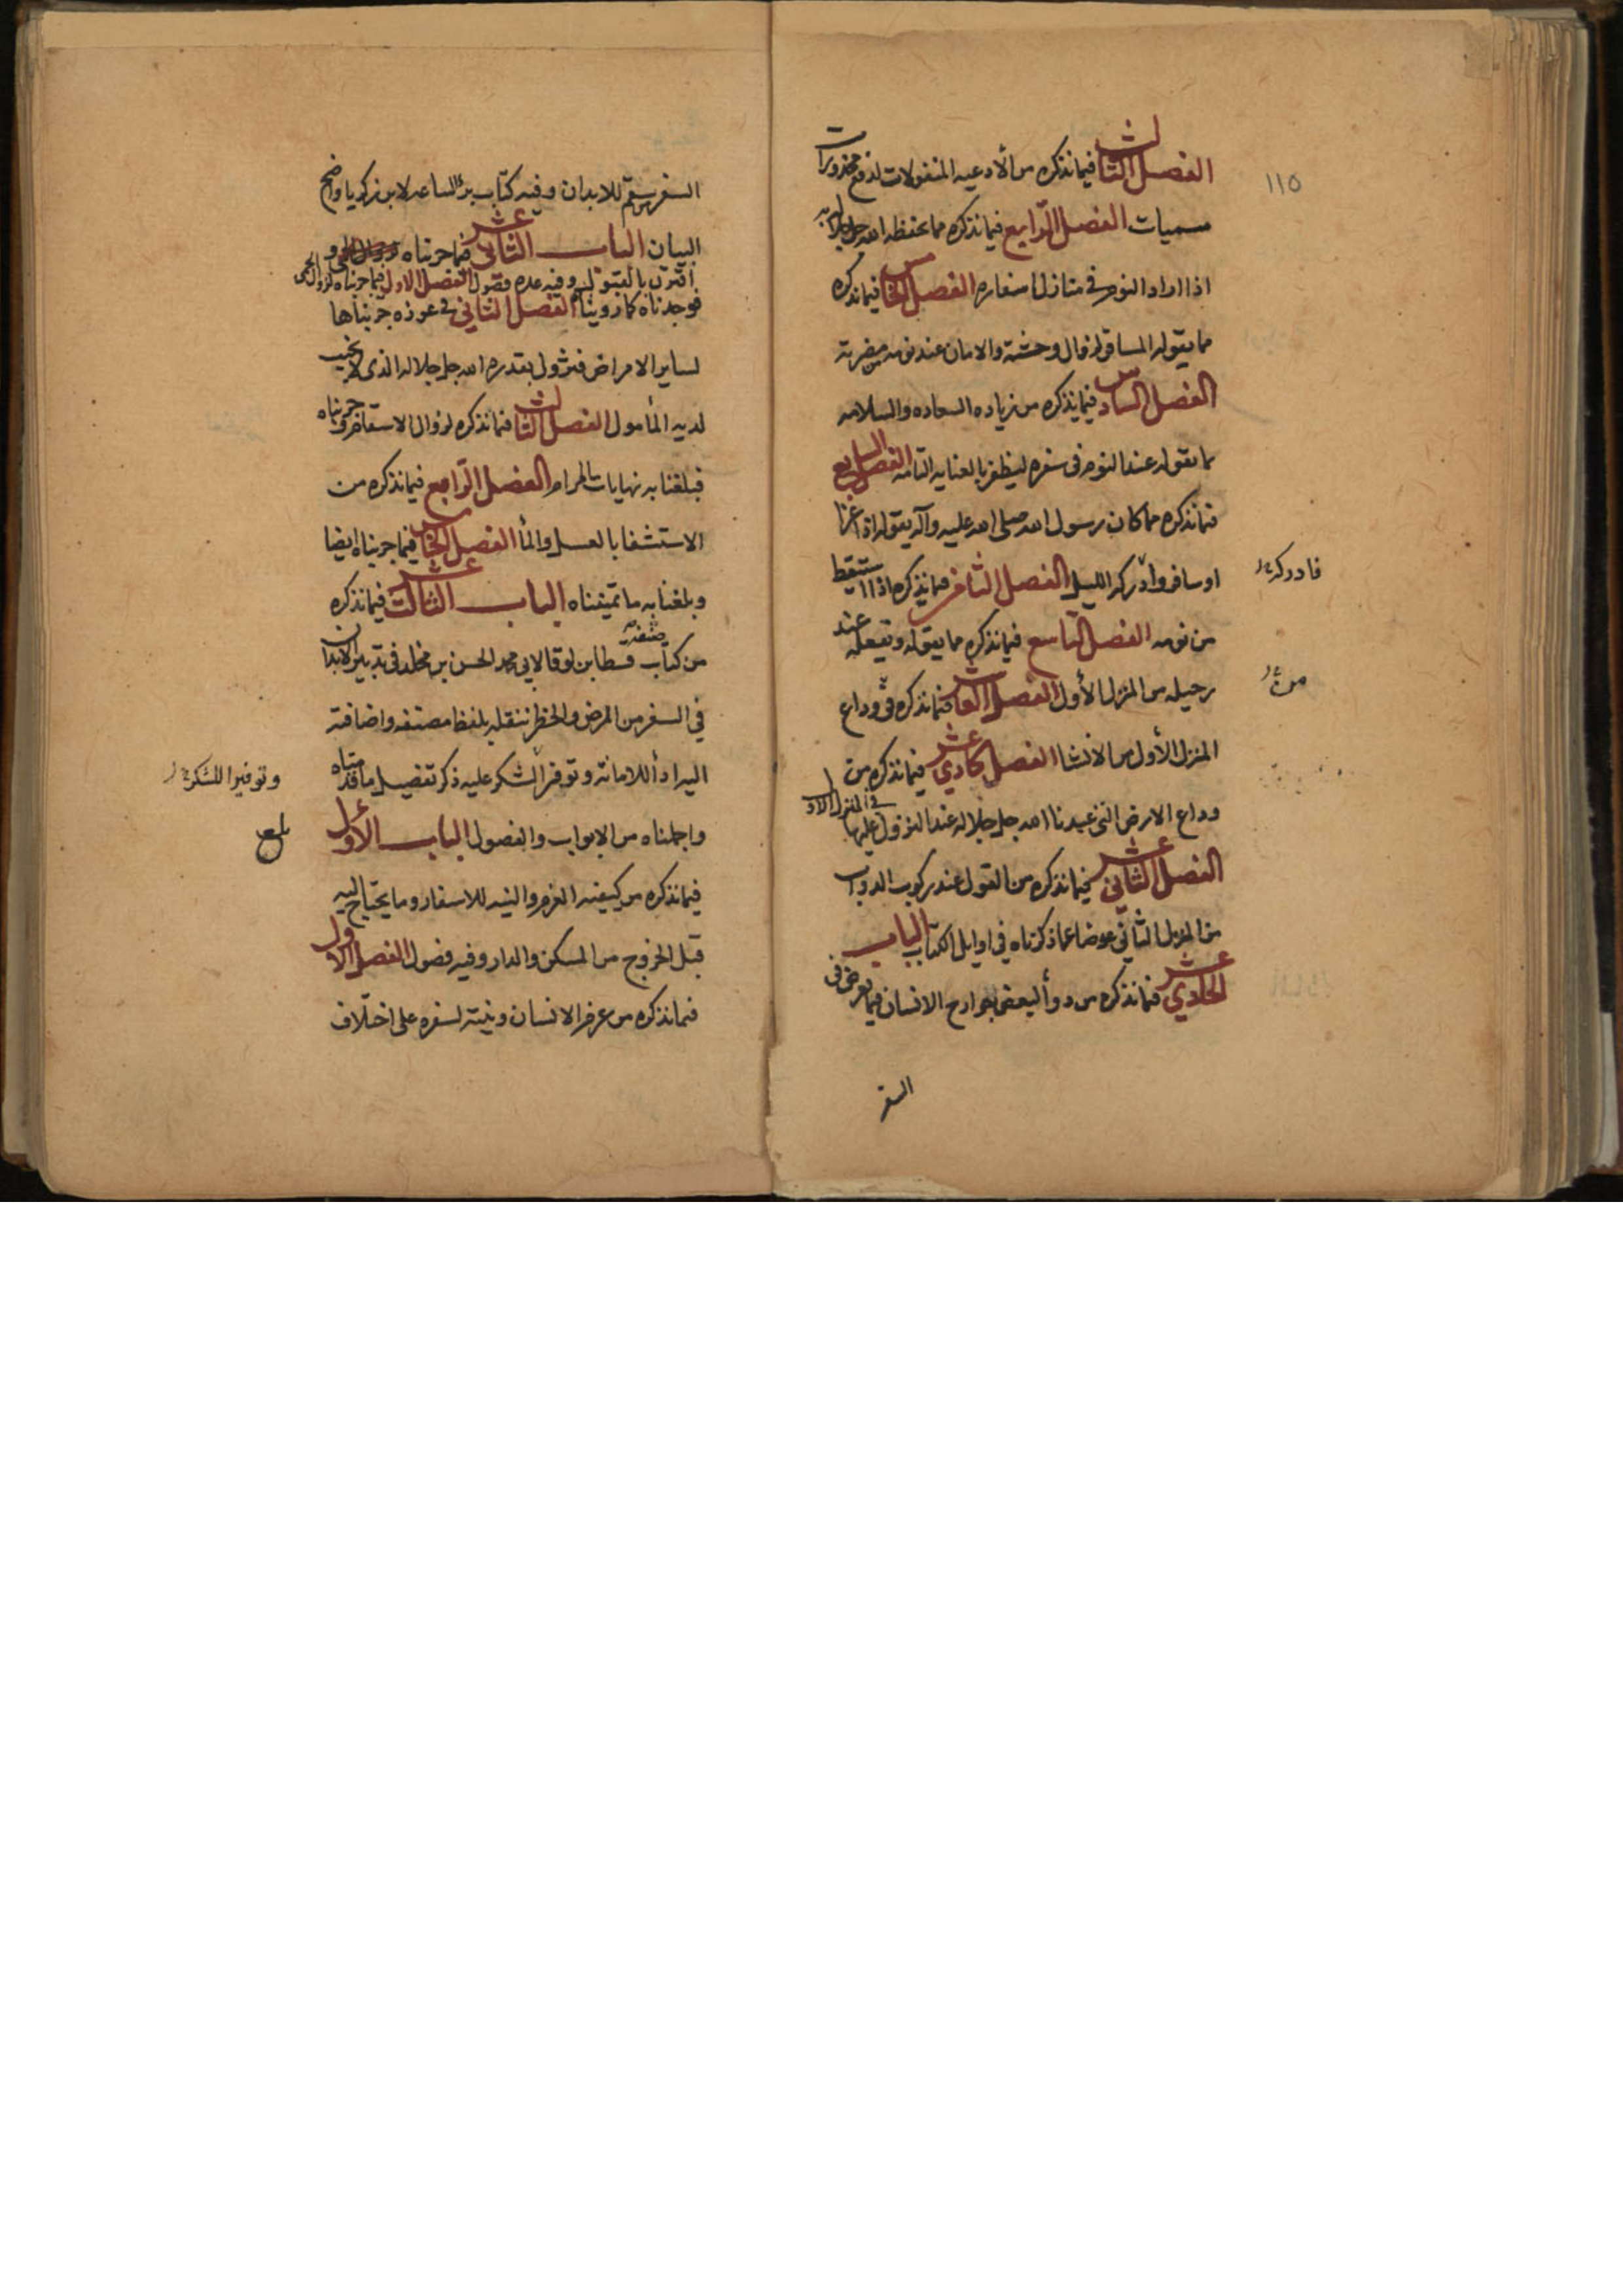 ١١٥
الفصل الثالث فيما نذكره من الأدعيه المنقولات لدفع محذورات
مسميات الفصل الرّابع فيما نذكره مما يحفظه الله جل جلاله به
اذا اراد النوم في منازل اسفاره الفصل الخامس فيما نذكره
مما يقوله المسافر لزوال وحشته والامان عند نومه من مضرته
الفصل السادس فيما نذكره من زياده السعاده والسلامه
بما يقوله عند النوم فى سفره ليظفر بالعنايه التامه الفصل السابع
فيما نذكره مما كان رسول الله صلى الله عليه وآله يقوله اذا غزا
او سافر وادركه الليل الفصل الثامن فيما نذكره اذا استيقظ
فادركه
من نومه الفصل التاسع فيما نذكره مما يقوله ويفعله عند
رحيله من المنزل الأول الفصل العاشر فيما نذكره في وداع
من
المنزل الأول من الانشا الفصل الحادي عشر فيما نذكره من
وداع الارض التي عبدنا الله جل جلاله عند النزول عليها في المنزل الاول
الفصل الثاني عشر فيما نذكره من القول عند ركوب الدواب
من المنزل الثاني عوضا عما ذكرناه في اوايل الكتاب الباب
الحادي عشر فيما نذكره من دوأ لبعض جوارح الانسان فيما يعرض فى
السفر
السفر من سقم للابدان وفيه كتاب برؤ الساعه لابن زكريا واضح
البيان الباب الثاني عشر فيما جربناه و
اقترن بالقبول وفيه عده فصول الفصل الاول فيما جربناه لزوال الحمى
فوجدناه كما رويناه الفصل الثاني في عوذه جربناها
لساير الامراض فتزول بقدره الله جل جلاله الذى لا يخيب
لديه المأمول الفصل الثالث فيما نذكره لزوال الاسقام وجربناه
فبلغنا به نهايات المرام الفصل الرّابع فيما نذكره من
الاستشفا بالعسل والمأ الفصل الخامس فيما جربناه ايضا
وبلغنا به ما تمنيناه الباب الثالث عشر فيما نذكره
من كتاب صنفه قسطا بن لوقا لابى محمد الحسن بن مخلد فى تدبير الابدان
في السفر من المرض والخطر ننقله بلفظ مصنفه واضافته
اليه ادأ للامانه وتوفر الشكر عليه ذكر تفصيل ما قدمناه
وتوفيرا للشكر
واجملناه من الابواب والفصول الباب الأول
بلغ
فيما نذكره من كيفيه العزم والنيه للاسفار وما يحتاج اليه
قبل الخروج من المسكن والدار وفيه فصول الفصل الاول
فيما نذكره من عزم الانسان ونيته لسفره على اختلاف